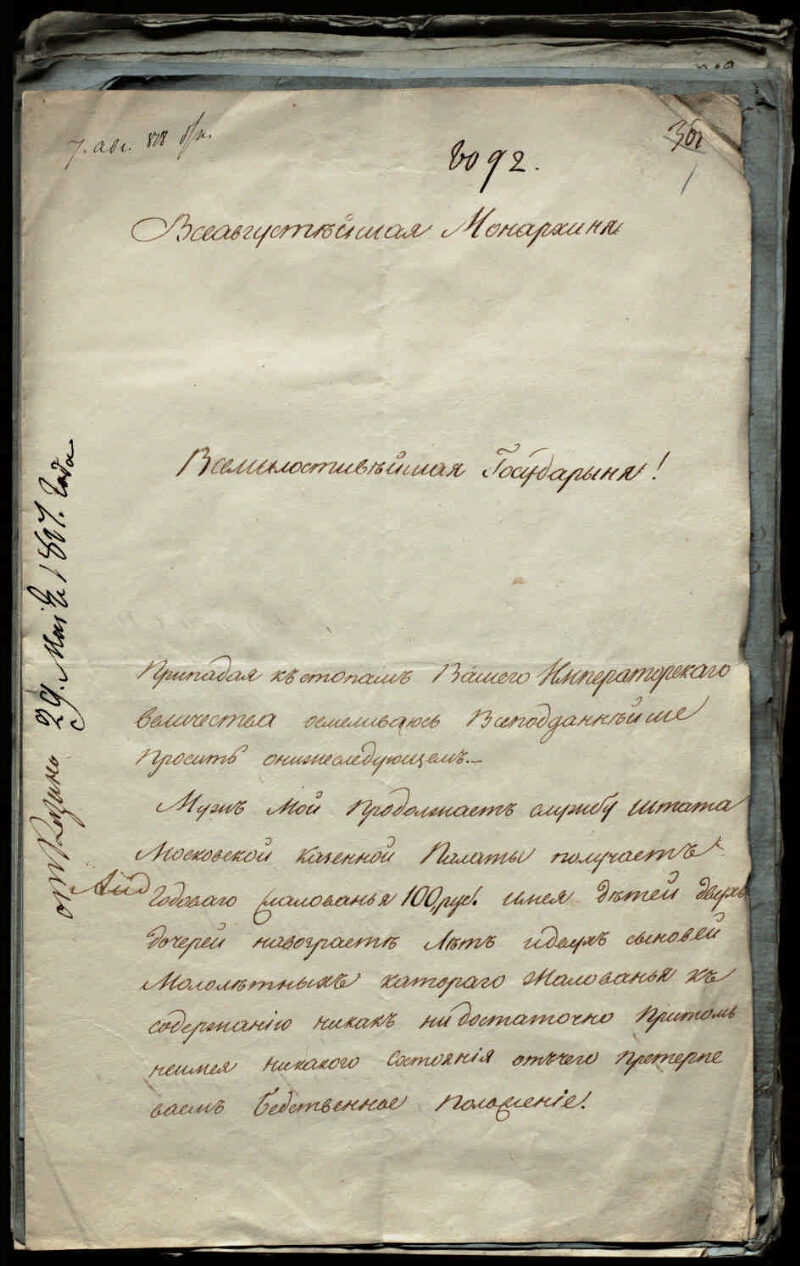 7. авг.
3092.
Всеавгустѣйшая Монархиня
Всемилостивѣйшая Государыня!
29. Маія 1827. Года
Припадая къстопамъ Вашего Императорскаго
величества осмеливаюсь Всеподданнѣйше
просить онижеследующемъ.
Мужъ Мой продолжаетъ службу штата
Московской казенной Палаты получаетъ
Годоваго жалованья 100 руб. имея дѣтей двухъ
дочерей навозрастѣ лѣтъ идвухъ сыновей
Мололѣтныхъ катораго жалованья къ
содержанію никакъ нидостаточно притомъ
неимея никакого состоянія отъчего претерпе
ваемъ бедственное положеніе!